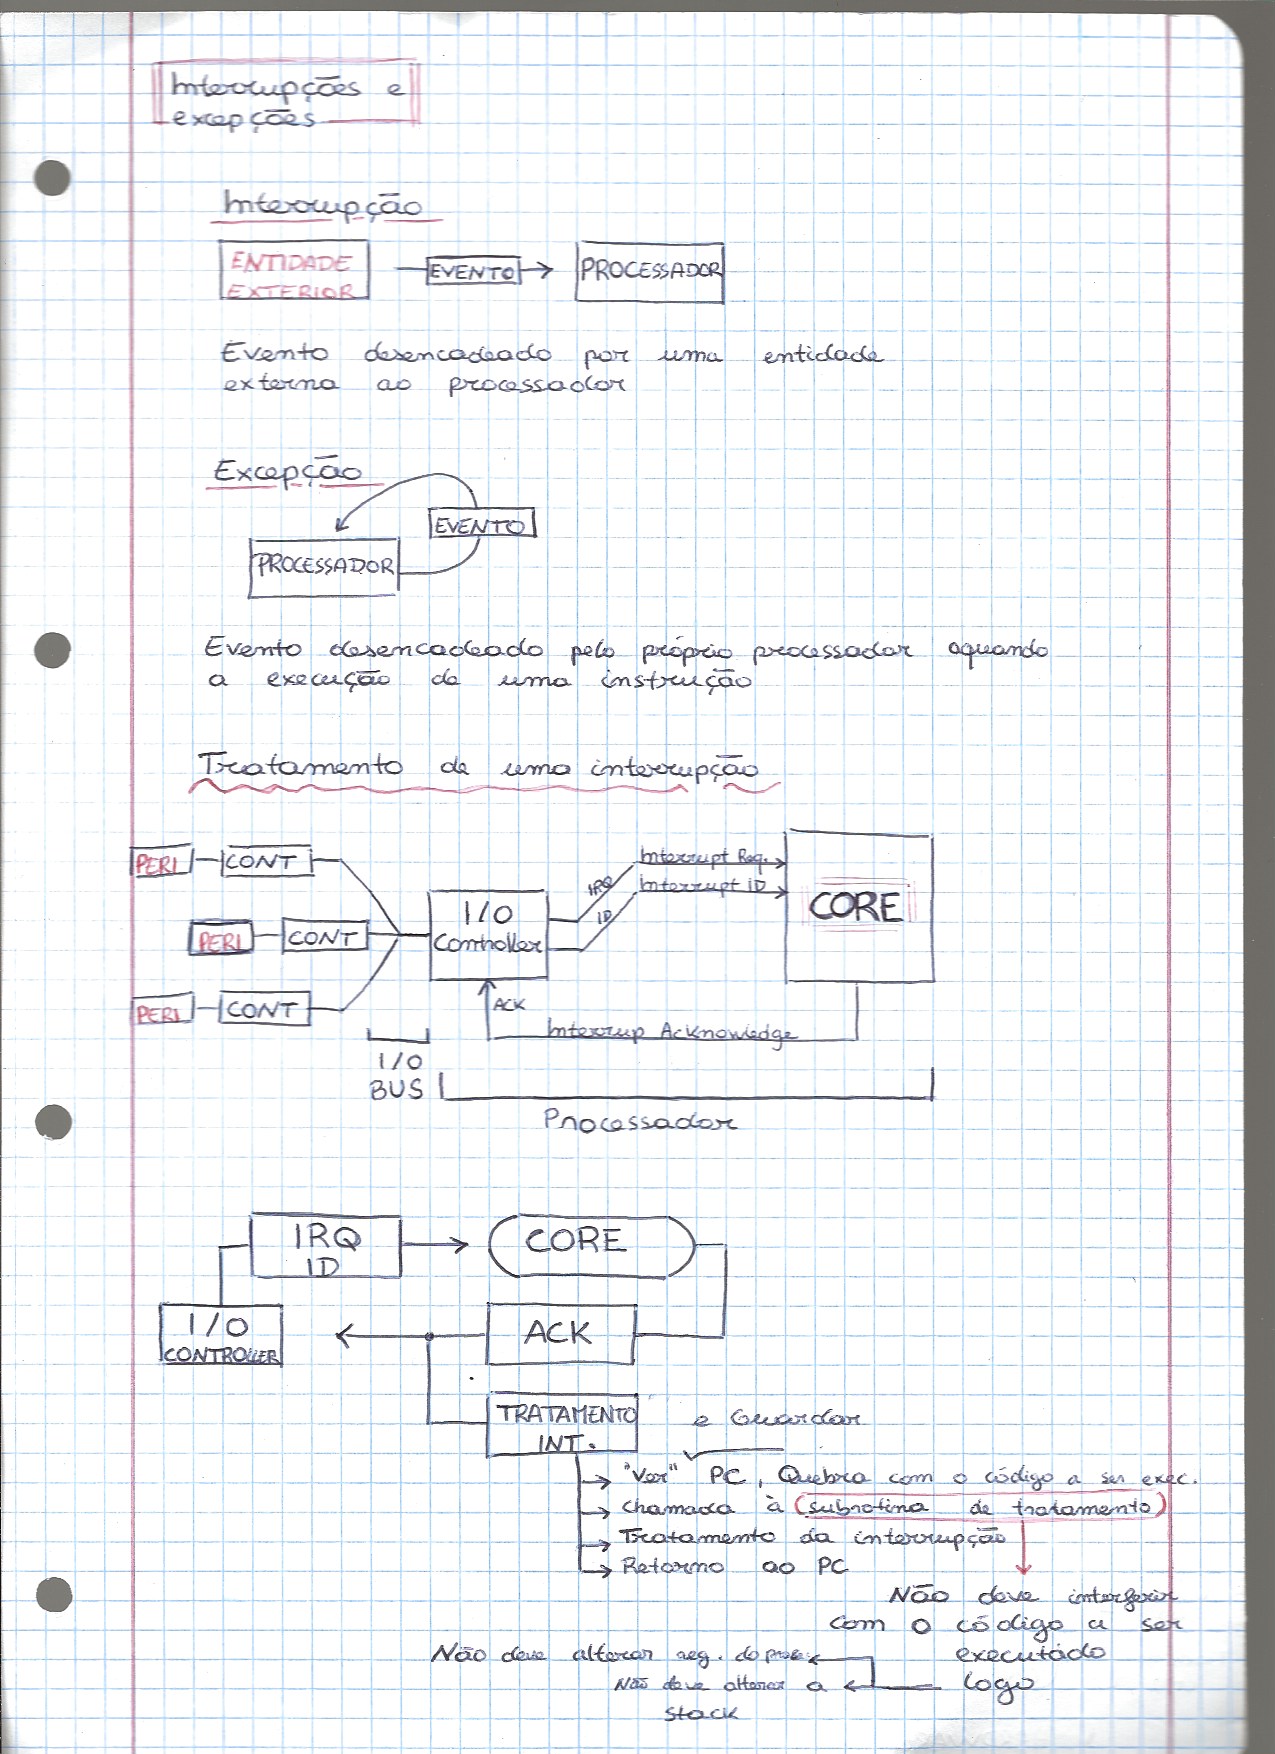 Interrupções e
excepções
Interrupção
ENTIDADE
EXTERIOR
EVENTO
PROCESSADOR
Evento desencadeado por uma entidade
externa ao processador
Excepção
EVENTO
PROCESSADOR
Evento desencadeado pelo próprio processador aquando
a execução de uma instrução
Tratamento de uma interrupção
PERI CONT
PERI CONT
PERI CONT
I/O
Controller
IRQ
ID
Interrupt Req.
Interrupt ID
CORE
ACK
Interrup Acknowledge
I/O
BUS
Processador
IRQ
ID
CORE
I/O
CONTROLLER
ACK
TRATAMENTO
INT.
e Guardar
"Ver" PC, Quebra com o código a ser exec.
Chamada à (subrotina de tratamento)
Tratamento da interrupção
Retorno ao PC
Não deve interferir
com o código a ser
executado
logo
Não deve alterar reg. do proc.
Não deve alterar a
stack